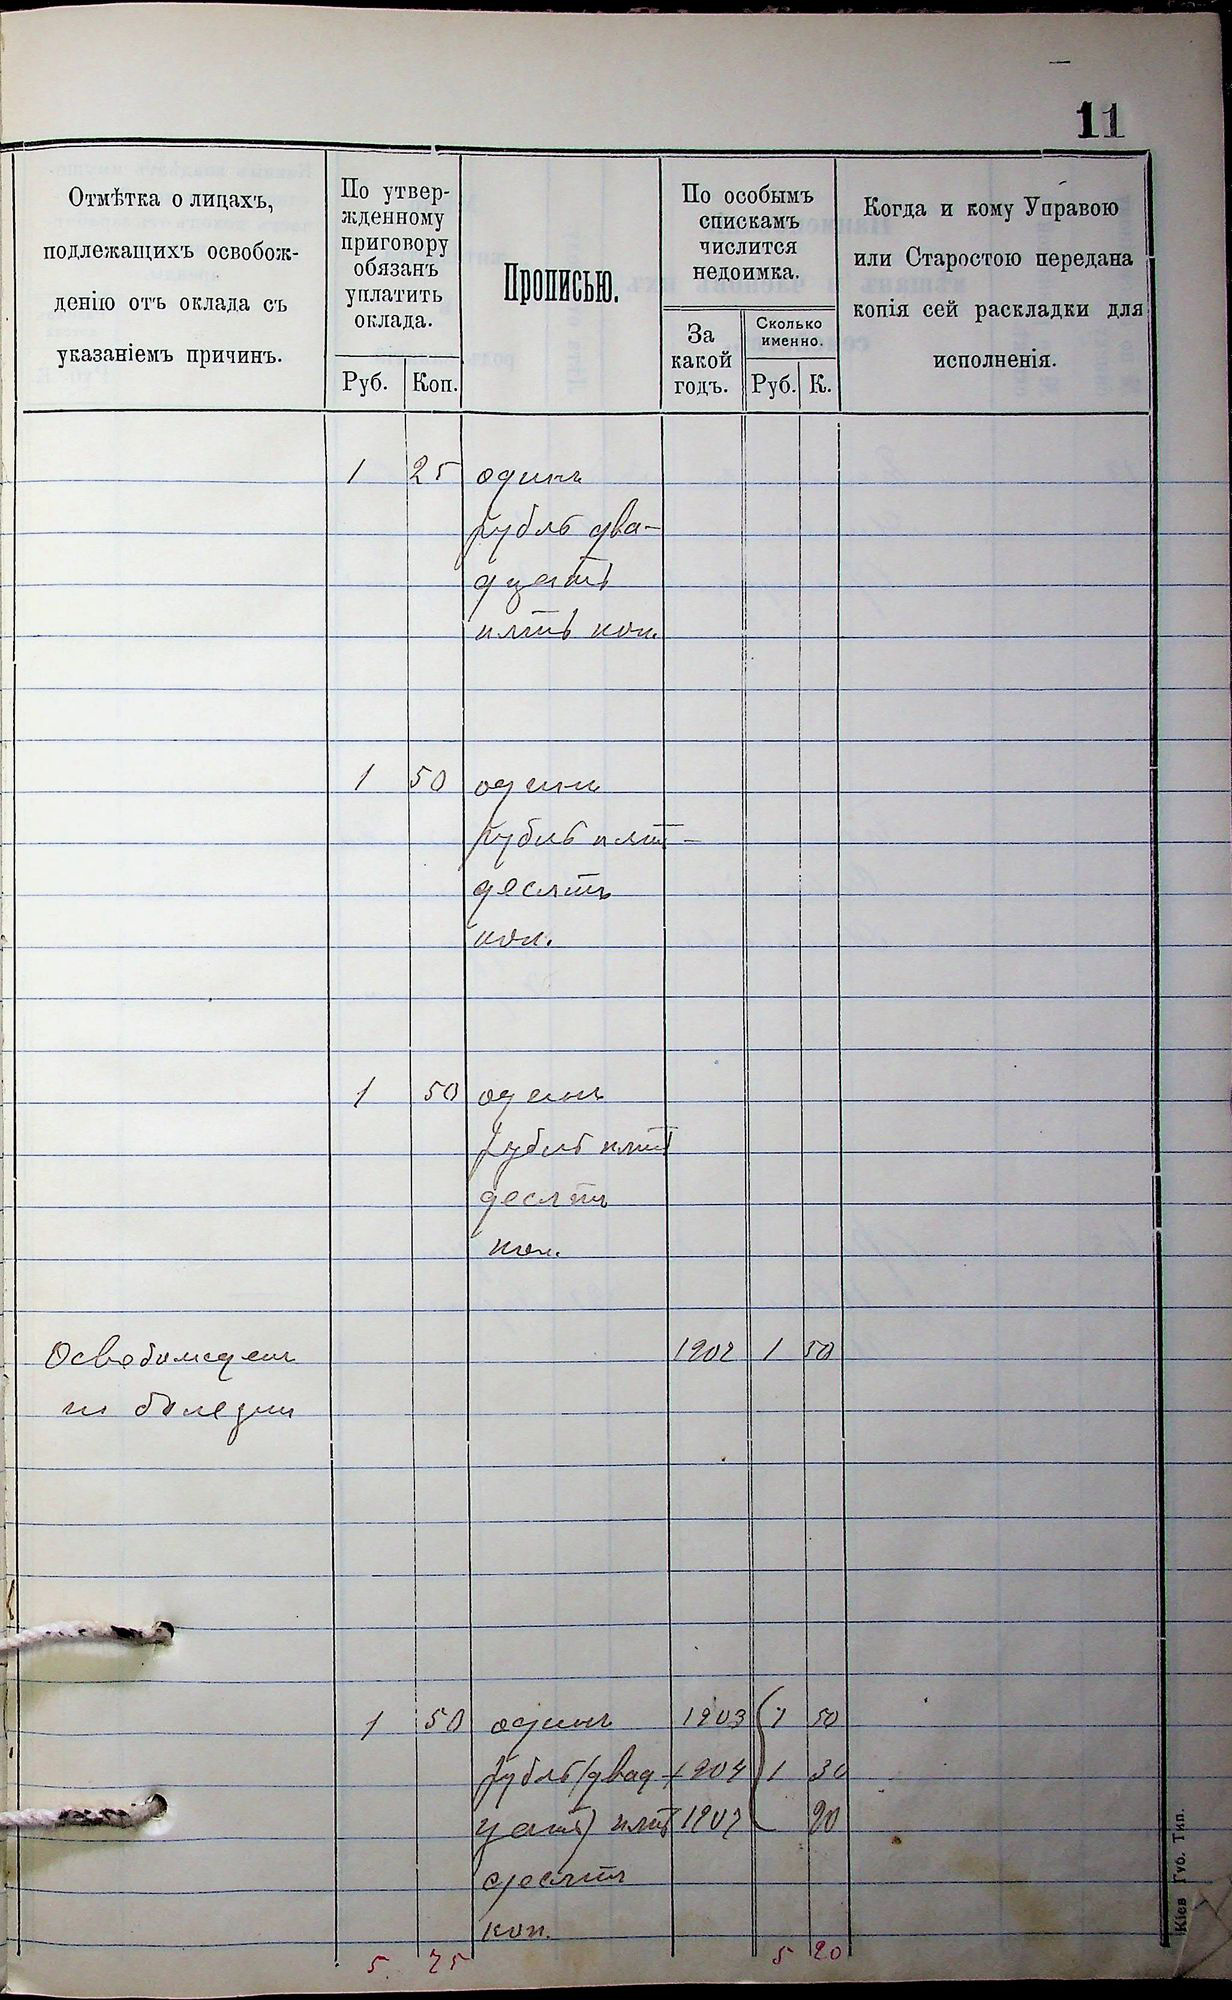 11
Отмѣтка о лицахъ,
подлежащихъ освобож-
денію отъ оклада съ
указаніемъ причинъ.
По утвер-
жденному
приговору
обязанъ
уплатить
оклада.
Руб. Коп.
Прописью.
По особымъ
спискамъ
числится
недоимка.
За
какой
годъ.
Сколько
именно.
Руб. К.
Когда и кому Управою
или Старостою передана
копія сей раскладки для
исполненія.
1 25 одинъ
рубль два-
дцать
пять коп.
1 50 одинъ
рубль пять-
десятъ
коп.
1 50 одинъ
рубль пять
десятъ
коп.
Освобожденъ 1907 1 50
по болезни
1 50 одинъ 1903 1 50
рубль (двад 1904 1 30
цать) пять 1907 90
десятъ
коп.
5 75 5 20
Кіев Губ. Тип.